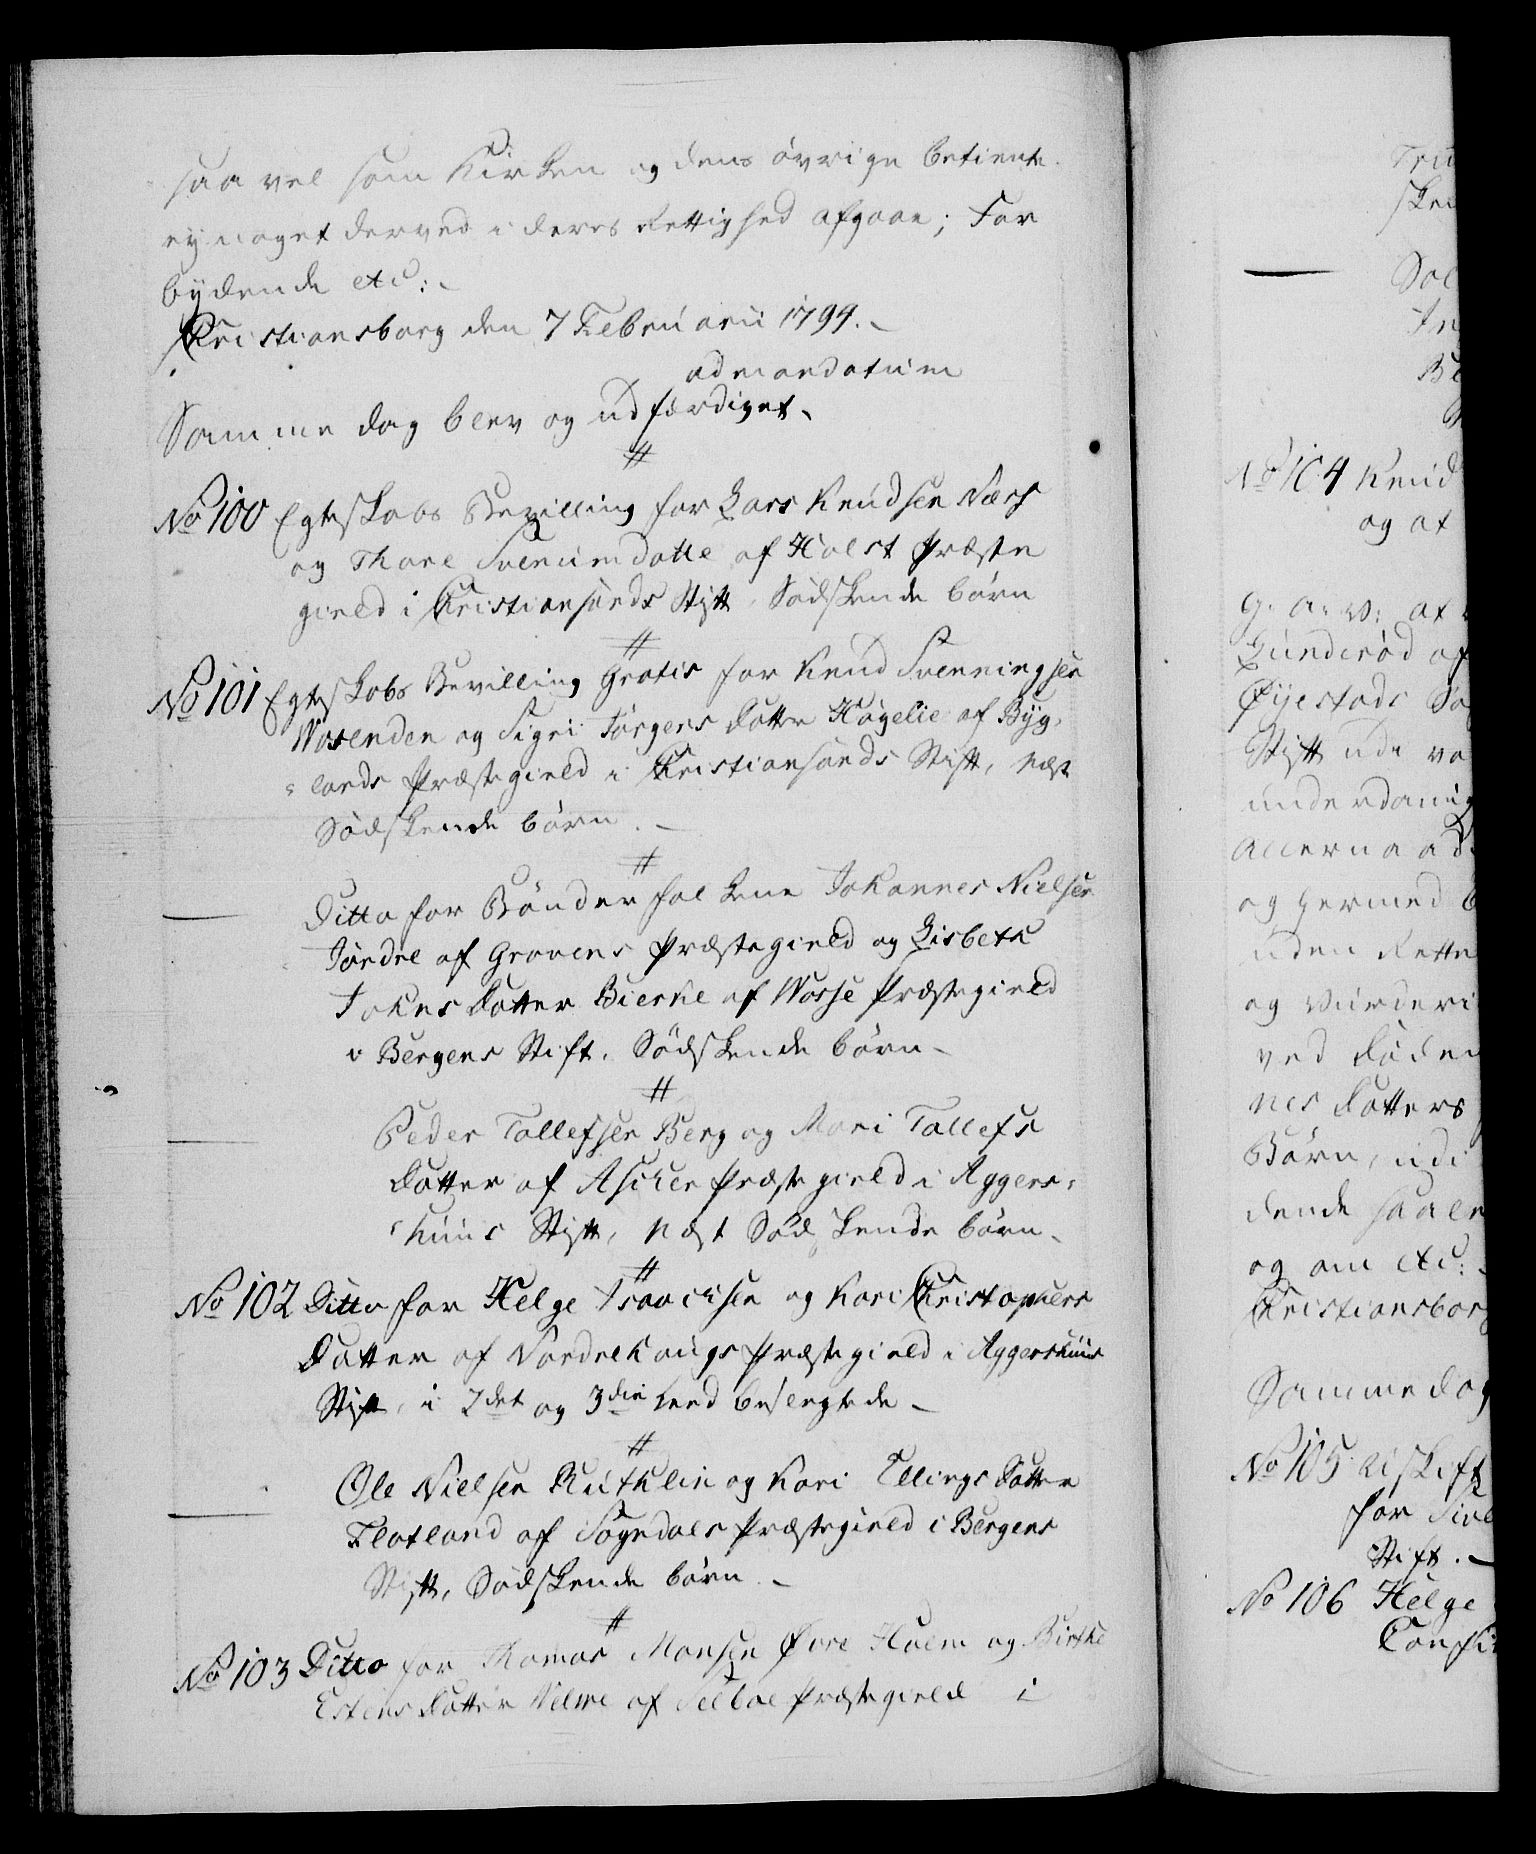 saa vel som Kirken og dens övrige betiente
ey noget derved i deres Rettighed afgaae; For
bydende etc:
Christiansborg den 7 Februarii 1794.
ad mandatum
Samme dag blev og udfærdiget.
No 100 Egteskabs Bevilling for Lars Knudsen
og Thore af Holst Præste
gield i Christiansands Stift, Södskende börn
No 101 Egteskabs Bevilling Gratis for Knud Svenningsen
Wosenden og Sigri Jörgens Datter Högelie af Byg-
lands Præstegield i Christiansands Stift, næst
Södskende börn.
Ditto for Bönderfolkene Johannes Nielsen
af Gravens Præstegield og Lisbeth
Johns Datter Bierke af Wosse Præstegield
i Bergens Stift. Södskende börn
Peder Tollefsen Berg og Mari Tollefs
Datter af Ascher Præstegield i Aggers-
huus Stift, næst Södskende börn.
No 102 Ditto for Helge Isaachsen og Kari Christophers
Datter af Nordrehougs Præstegield i Aggershuus
Stift, i 2det og 3die Leed besvegtede
Ole Nielsen Ruthlin og Kari Ellings Datter
Flatland af Sogndals Præstegield i Bergens
Stift, Södskende börn.
No 103 Ditto for Thomas Monsen Övre Holm og Birthe
Estens Datter af Selboe Præstegield i
No 104 Knud
og at
G: A: V: at
Gunderöd af
Öyestads
Stift
og hermed
uden Rette
ved
nes Datters
Börn, udi
og om etc:
Christiansborg
Samme dag
No 105
for
Stift.
No 106 Helge